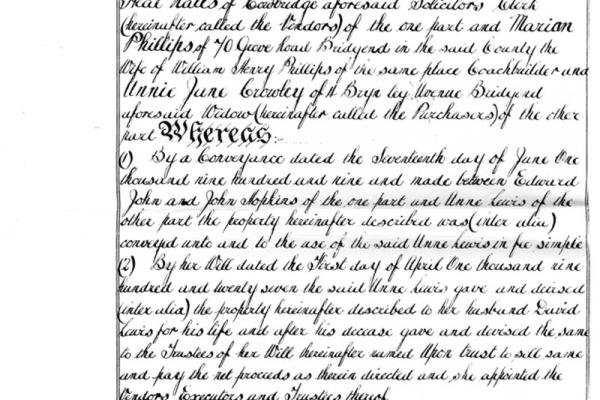 Neal Watts of Cowbridge aforesaid Solicitors Clerk
(hereinafter called the Vendors) of the one part and Marian
Phillips of 70 Grove Road Bridgend in the said County the
Wife of William Henry Phillips of the same place Coachbuilder and
Annie June Crowley of 4 Bryn ley Avenue Bridgend
aforesaid Widow (hereinafter called the Purchasers) of the other
part Whereas:-
(1) By a Conveyance dated the Seventeenth day of June One
thousand nine hundred and nine and made between Edward
John and John Hopkins of the one part and Anne Lewis of the
other part the property hereinafter described was (inter alia)
conveyed unto and to the use of the said Anne Lewis in fee simple
(2) By her Will dated the First day of April One thousand nine
hundred and twenty seven the said Anne Lewis gave and devised
(inter alia) the property hereinafter described to her husband David
Lewis for his life and after his decease gave and devised the same
to the Trustees of her Will hereinafter named Upon trust to sell same
and pay the net proceeds as therein directed and she appointed the
Vendors Executors and Trustees thereof